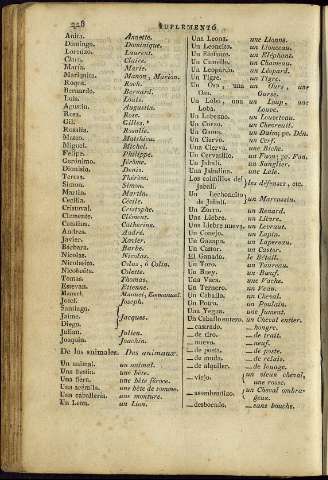 228 SUPLEMENTO
Anita. Annette.
Domingo. Dominique.
Lorenzo. Laurent.
Clara. Claire.
María. Marie.
Mariquita. Manon, Marion.
Roque. Roch.
Bernardo. Bernard.
Luis. Louis.
Agustin. Augustin.
Rosa. Rose.
Gil. Gilles.
Rosalía. Rosalie.
Mateo. Matthieu.
Miguel. Michel.
Felipe. Philippe.
Gerónimo. Jérôme.
Dionisio. Denis.
Teresa. Thérèse.
Simon. Simon.
Martin. Martin.
Cecilia. Cécile.
Cristoval. Cristophe.
Clemente. Clément.
Catalina. Catherine.
Andres. André.
Javier. Xavier.
Bárbara. Barbe.
Nicolas. Nicolas.
Nicolasito. Colas, ó Colin.
Nicolasita. Colette.
Tomas. Thomas.
Estevan. Etienne.
Manuel. Manuel, Emmanuel.
Josef. Joseph.
Santiago.
Jayme. Jacques.
Diego.
Julian. Julien.
Joaquin. Joachim.
De los animales. Des animaux.
Un animal. un animal.
Una bestia. une bête.
Una fiera. une bête féroce.
Una acémila. une bête de somme.
Una caballería. une monture.
Un Leon. un Lion.
Una Leona. une Lionne.
Un Leoncito. un Lionceau.
Un Elefante. un Eléphant.
Un Camello. un Chameau.
Un Leopardo. un Léopard.
Un Tigre. un Tigre.
Un Oso, una un Ours, une
Osa. Ourse.
Un Lobo, una un Loup, une
Loba. Louve.
Un Lobezno. un Louveteau.
Un Corzo. un Chevreuil.
Un Gamo. un Daim; po. Dén.
Un Ciervo. un Cerf.
Una Cierva. une Biche.
Un Cervatillo. un Faon; po. Fan.
Un Jabalí. un Sanglier.
Una Jabalina. une Laie.
Los colmillos del
Jabalí. les défenses, etc.
Un Lechoncito
de Jabalí. un Marcassin.
Un Zorro. un Renard.
Una Liebre. un Lièvre.
Una Liebre nueva. un Levraut.
Un Conejo. un Lapin.
Un Gazapo. un Lapereau.
Un Castor. un Castor.
El Ganado. le Bétail.
Un Toro. un Taureau.
Un Buey. un Bœuf.
Una Vaca. une Vache.
Un Ternero. un Veau.
Un Caballo. un Cheval.
Un Potro. un Poulain.
Una Yegua. une Jument.
Un Caballo entero. un Cheval entier.
—castrado. — hongre.
—de tiro. — de trait.
—nuevo. — neuf.
—de posta. — de poste.
—de muda. — de relais.
—de alquiler. — de louage.
—viejo. un vieux cheval,
une rosse.
—asombradizo. un Cheval ombra-
geux.
—desbocado. — sans bouche.